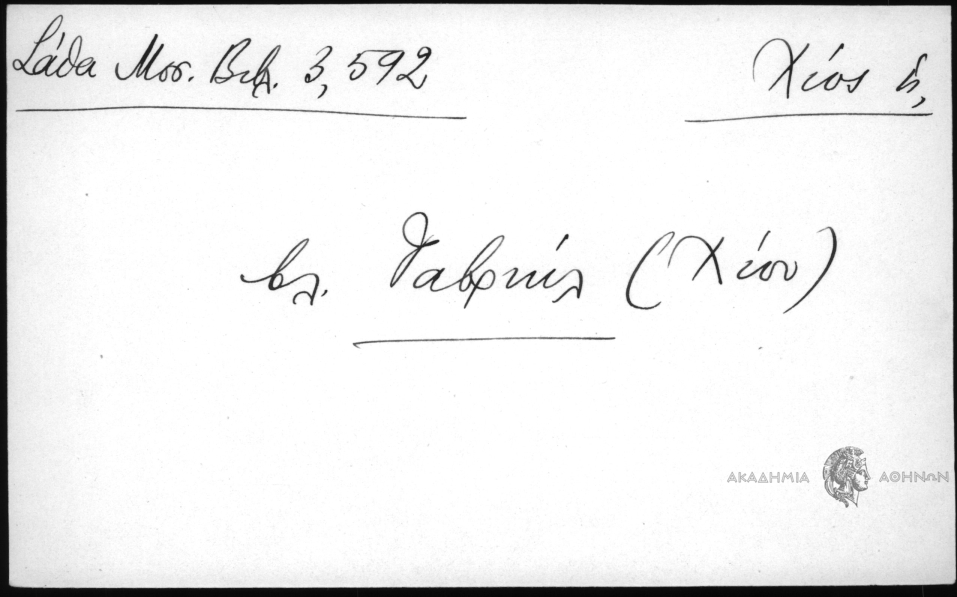 Σάθα Μεσ. Βιβλ. 3, 592
Χίος ἡ,
βλ. Γαβριήλ (Χίου)
ΑΚΑΔΗΜΙΑ ΑΘΗΝΩΝ